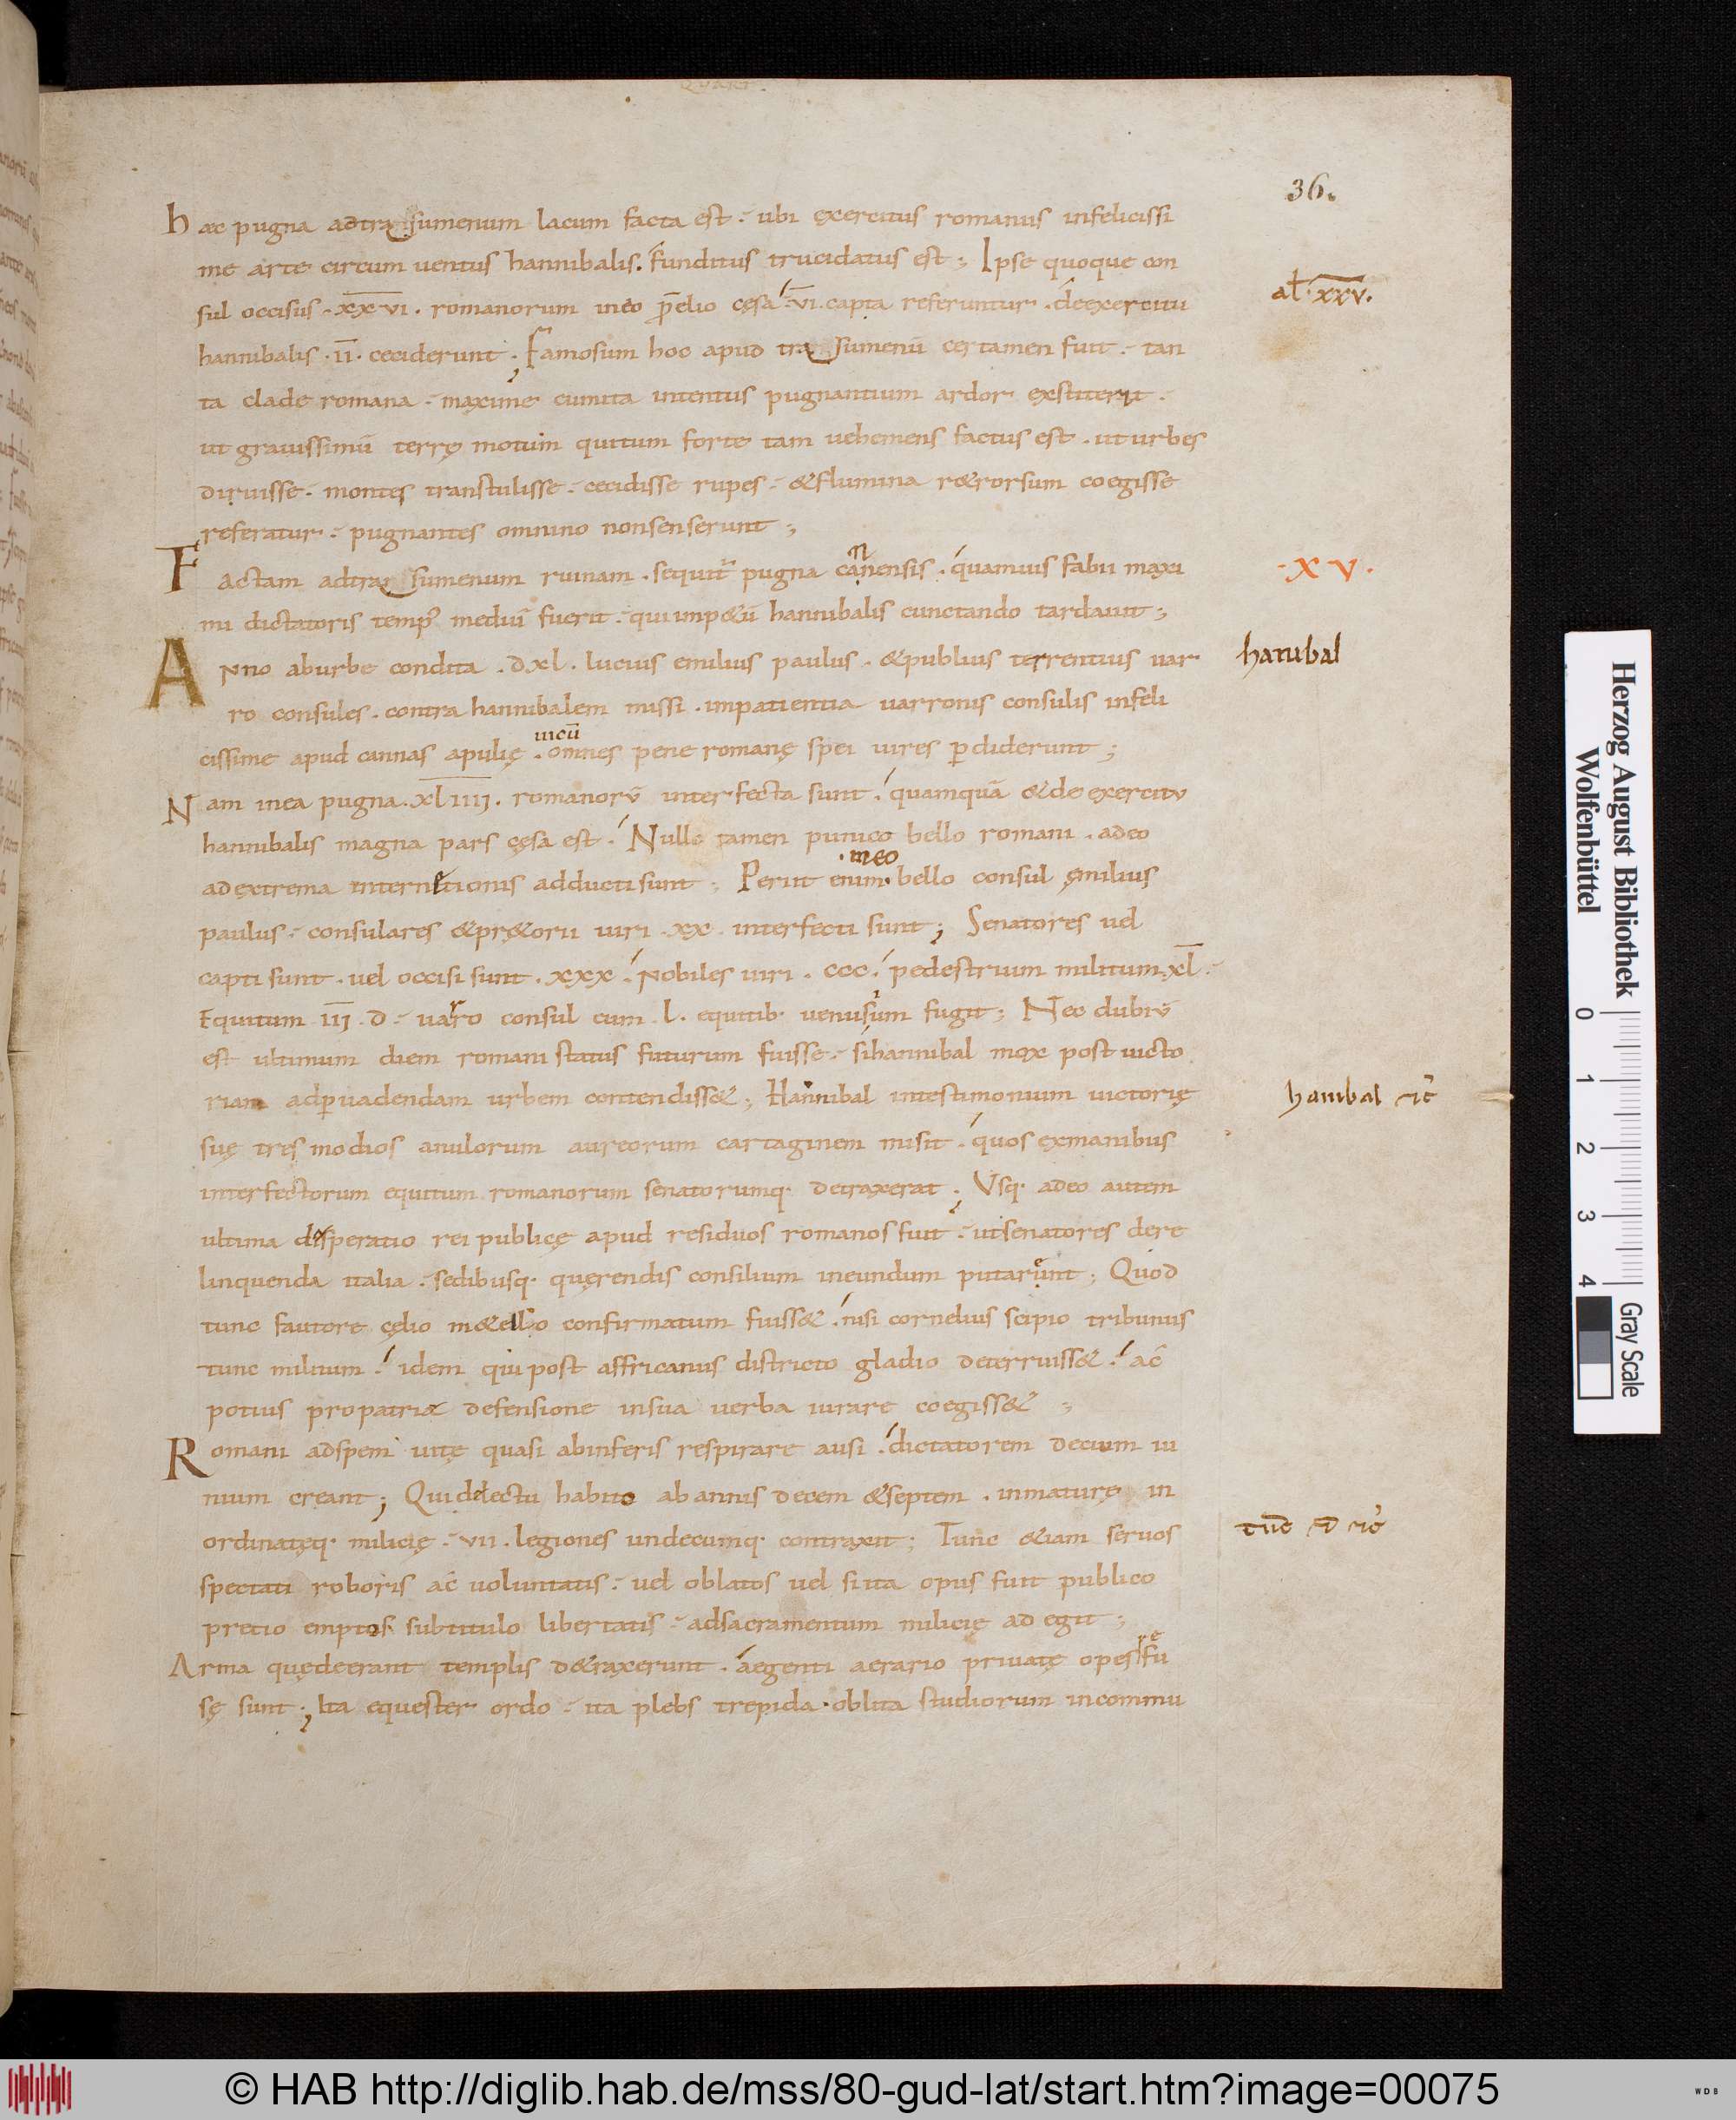 QVART.
36.
hæc pugna adtrasumenum lacum facta est. ubi exercitus romanus infelicissi
me arte circum uentus hannibalis. funditus trucidatus est; Ipse quoque con
sul occisus. x̅x̅v̅i̅. romanorum ineo p̄elio cęsa. v̅i̅. capta referuntur. deexercitu
al̄. x̅x̅v̅.
hannibalis. i̅i̅. ceciderunt; Famosum hoc apud trasumenū certamen fuit. tan
ta clade romana. maxime cumita intentus pugnantium ardor exstiterit.
ut grauissimū terrę motum quitum forte tam uehemens factus est. uturbes
diruisse. montes transtulisse. cecidisse rupes. &flumina r&rorsum coegisse
referatur. pugnantes omnino nonsenserunt;
Factam adtrasumenum ruinam. sequit̄ pugna cannensis. quamuis fabii maxi
·XV·
mi dictatoris temp' mediū fuerit. quiimp&ū hannibalis cunctando tardauit;
ANno aburbe condita. dxl. lucius emilius paulus. &publius terrentius uar
hanibal
ro consules. contra hannibalem missi. impatientia uarronis consulis infeli
cissime apud cannas apulię uicū. omnes pene romanę spei uires p̱diderunt;
Nam inea pugna. x̅l̅i̅i̅i̅i̅. romanorū interfecta sunt. quamquā &de exercitu
hannibalis magna pars cęsa est. Nullo tamen punico bello romani. adeo
adextrema internetionis adducti sunt; Periit enim ineo bello consul emilius
paulus. consulares &pr&orii uiri. xx. interfecti sunt; Senatores uel
capti sunt. uel occisi sunt. xxx. Nobiles uiri. ccc. pedestrium militum. x̅l̅.
Equitum i̅i̅i̅. d. uarro consul cum. l. equitib· uenusium fugit; Nec dubiū
est ultimum diem romani status futurum fuisse. sihannibal mox post uicto
riam adp̱uadendam urbem contendiss&; Hannibal intestimonium uictorię
hanibal
suę tres modios anulorum aureorum cartaginem misit. quos exmanibus
interfectorum equitum romanorum senatorumq· detraxerat; Vsq· adeo autem
ultima desperatio rei publicę apud residuos romanos fuit. utsenatores dere
linquenda italia. sedibusq· quęrendis consilium ineundum putarent; Quod
tunc fautore cęlio m&ello confirmatum fuiss&. nisi cornelius scipio tribunus
tunc militum. idem qui post affricanus districto gladio deterruiss&. ac
potius propatriæ defensione insua uerba iurare coegiss&;
Romani adspem uitę quasi abinferis respirare ausi. dictatorem decium iu
nium creant; Qui delectu habito ab annis decem &septem. inmaturę in
ordinatęq· milicię. vii. legiones undecumq· contraxit; Tunc &iam seruos
spectati roboris ac uoluntatis. uel oblatos uel si ita opus fuit publico
precio emptos subtitulo libertatis. adsacramentum milicię ad egit;
Arma quędeerant templis d&raxerunt. aegenti aerario priuatę opes refu
sę sunt; Ita equester ordo. ita plebs trepida. oblita studiorum incommu
Herzog August Bibliothek
Wolfenbüttel
0 1 2 3 4
Gray Scale
© HAB http://diglib.hab.de/mss/80-gud-lat/start.htm?image=00075
WDB